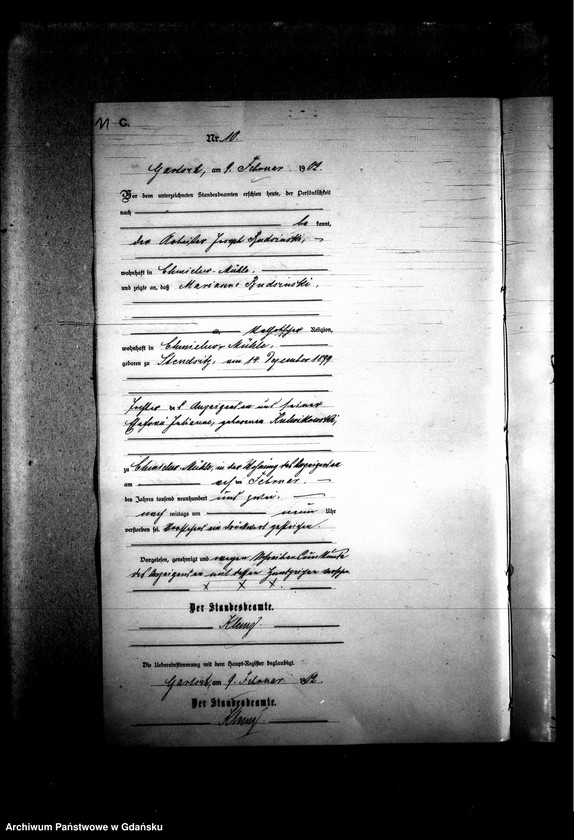 11 C.
Nr. 10.
am 9. Februar 1902.
Vor dem unterzeichneten Standesbeamten erschien heute, der Persönlichkeit
nach
be kannt,
der Arbeiter Joseph Rudzinski,
wohnhaft in Chmieler-Mühle,
und zeigte an, daß Marianne Rudzinski,
katholischer Religion,
wohnhaft in Chmieler-Mühle,
geboren zu Stendsitz, am 14. Dezember 1899
Tochter des Anzeigenden und seiner
Ehefrau Julianne, geborenen
zu Chmieler-Mühle, in der Wohnung des Anzeigenden
am achten Februar
des Jahres tausend neunhundert und zwei,
nach mittags um neun Uhr
verstorben sei. Vorstehend ein Druckwort gestrichen.
Vorgelesen, genehmigt und wegen Schreibensunkunde
des Anzeigenden mit dessen Handzeichen versehen
x x x.
Der Standesbeamte.
Die Uebereinstimmung mit dem Haupt-Register beglaubigt.
am 9. Februar 1902
Der Standesbeamte.
Archiwum Państwowe w Gdańsku